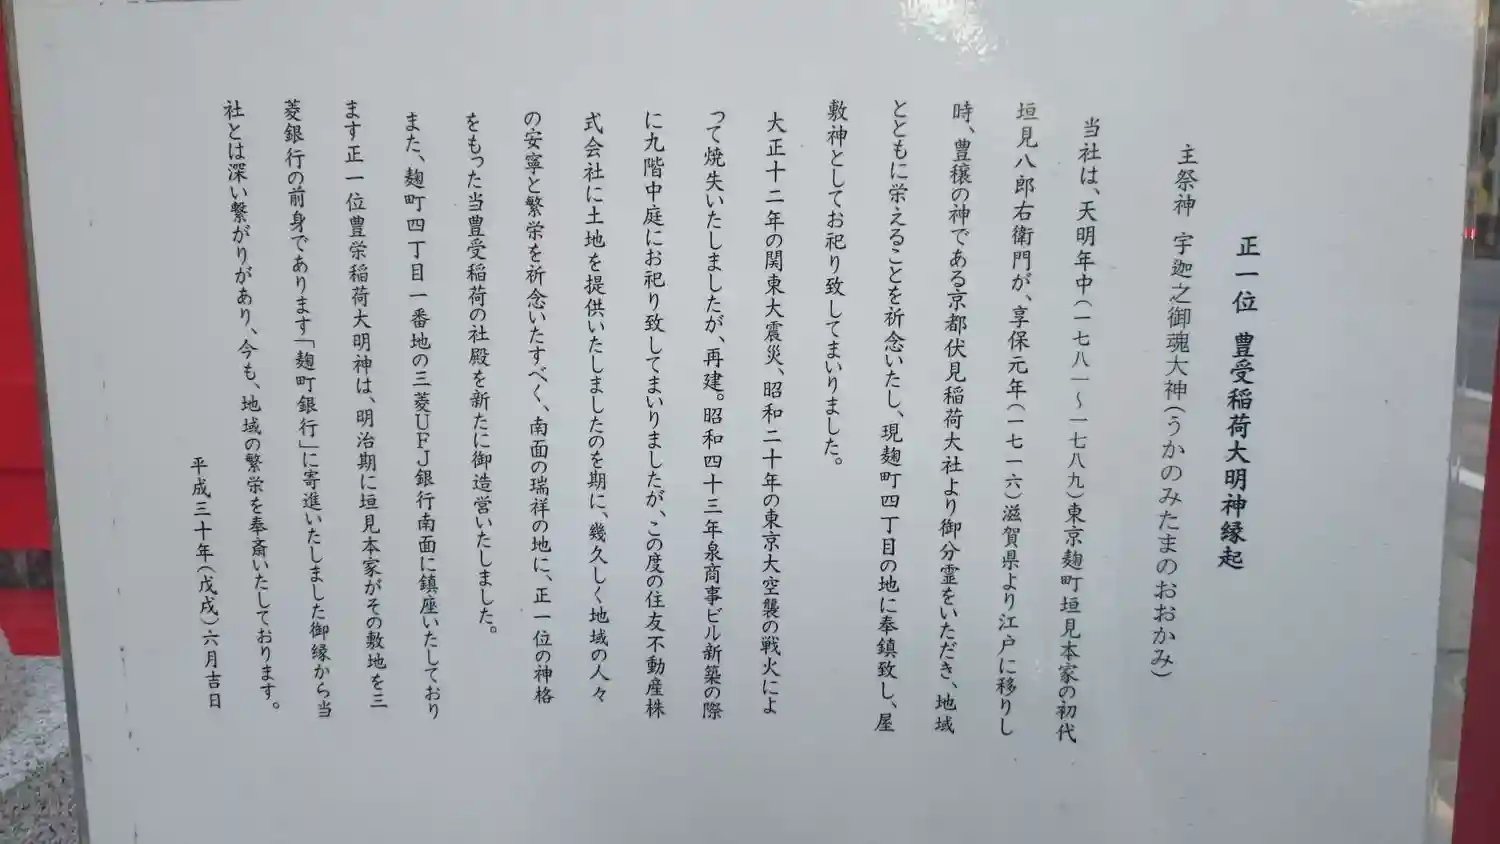 正一位 豊受稲荷大明神縁起
主祭神 宇迦之御魂大神(うかのみたまのおおかみ)
当社は、天明年中(一七八一〜一七八九)東京麹町垣見本家の初代
垣見八郎右衛門が、享保元年(一七一六)滋賀県より江戸に移りし
時、豊穣の神である京都伏見稲荷大社より御分霊をいただき、地域
とともに栄えることを祈念いたし、現麹町四丁目の地に奉鎮致し、屋
敷神としてお祀り致してまいりました。
大正十二年の関東大震災、昭和二十年の東京大空襲の戦火によ
って焼失いたしましたが、再建。昭和四十三年泉商事ビル新築の際
に九階中庭にお祀り致してまいりましたが、この度の住友不動産株
式会社に土地を提供いたしましたのを期に、幾久しく地域の人々
の安寧と繁栄を祈念いたすべく、南面の瑞祥の地に、正一位の神格
をもった当豊受稲荷の社殿を新たに御造営いたしました。
また、麹町四丁目一番地の三菱UFJ銀行南面に鎮座いたしており
ます正一位豊栄稲荷大明神は、明治期に垣見本家がその敷地を三
菱銀行の前身であります「麹町銀行」に寄進いたしました御縁から当
社とは深い繋がりがあり、今も、地域の繁栄を奉斎いたしております。
平成三十年(戊戌)六月吉日